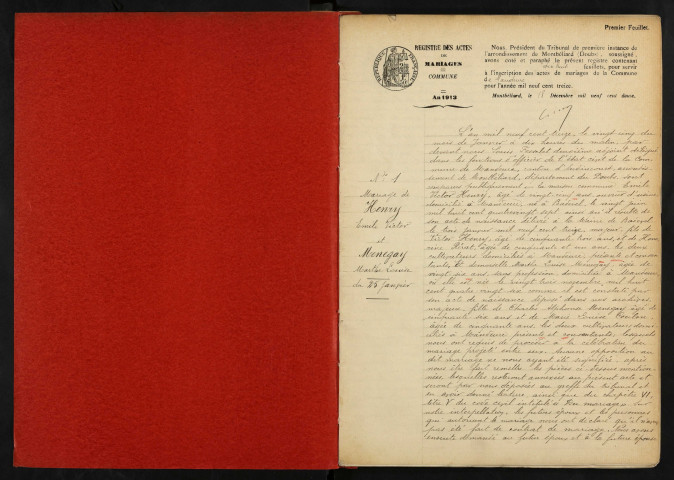 Premier Feuillet.
REGISTRE DES ACTES
DE
MARIAGES
COMMUNE
An 1913
RÉPUBLIQUE FRANÇAISE
Nous, Président du Tribunal de première instance de
l'arrondissement de Montbéliard (Doubs), soussigné,
avons coté et paraphé le présent registre contenant
feuillets, pour servir
à l'inscription des actes de mariages de la Commune
de Mandeure
pour l'année mil neuf cent treize.
Montbéliard, le Décembre mil neuf cent douze.
N° 1
Mariage de
Henry
Emile Victor
et
Menegay
Marthe Louise
du 25 Janvier
L'an mil neuf cent treize, le vingt cinq du
mois de Janvier à dix heures du matin, par
devant nous Louis deuxième adjoint délégué
dans les fonctions d'officier de l'état civil de la Com
mune de Mandeure, canton d'Audincourt arrondis
sement de Montbéliard, département du Doubs, sont
comparus publiquement en la maison commune Emile
Victor Henry, âgé de vingt cinq ans
domicilié à Mandeure, né à le vingt juin
mil huit cent quatre vingt sept ainsi qu'il résulte de
son acte de naissance délivré à la Mairie de
le trois Janvier mil neuf cent treize, majeur, fils de
Victor Henry, âgé de cinquante trois ans, et de
âgée de cinquante et un ans, les deux
cultivateurs domiciliés à Mandeure, présents et consen
tants, Et demoiselle Marthe Louise Menegay âgée de
vingt six ans, sans profession domiciliée à Mandeure
où elle est née le vingt trois novembre, mil huit
cent quatre vingt six comme il est constaté par
son acte de naissance déposé dans nos archives
majeure, fille de Charles Alphonse Menegay âgé de
cinquante six ans et de Marie Louise
âgée de cinquante ans les deux cultivateurs domi
ciliés à Mandeure présents et consentants. Lesquels
nous ont requis de procéder à la célébration du
mariage projeté entre eux. Aucune opposition au
dit mariage ne nous ayant été signifiée, après
nous être fait remettre les pièces ci-dessus mention
nées, lesquelles resteront annexées au présent acte et
seront par nous déposées au greffe du tribunal et
en avoir donné lecture ainsi que du chapitre VI,
titre V du code civil intitulé du mariage sur
notre interpellation, les futurs époux et les personnes
qui autorisent le mariage nous ont déclaré qu'il n'avait
pas été fait de contrat de mariage. Nous avons
ensuite demandé au futur époux et à la future épouse